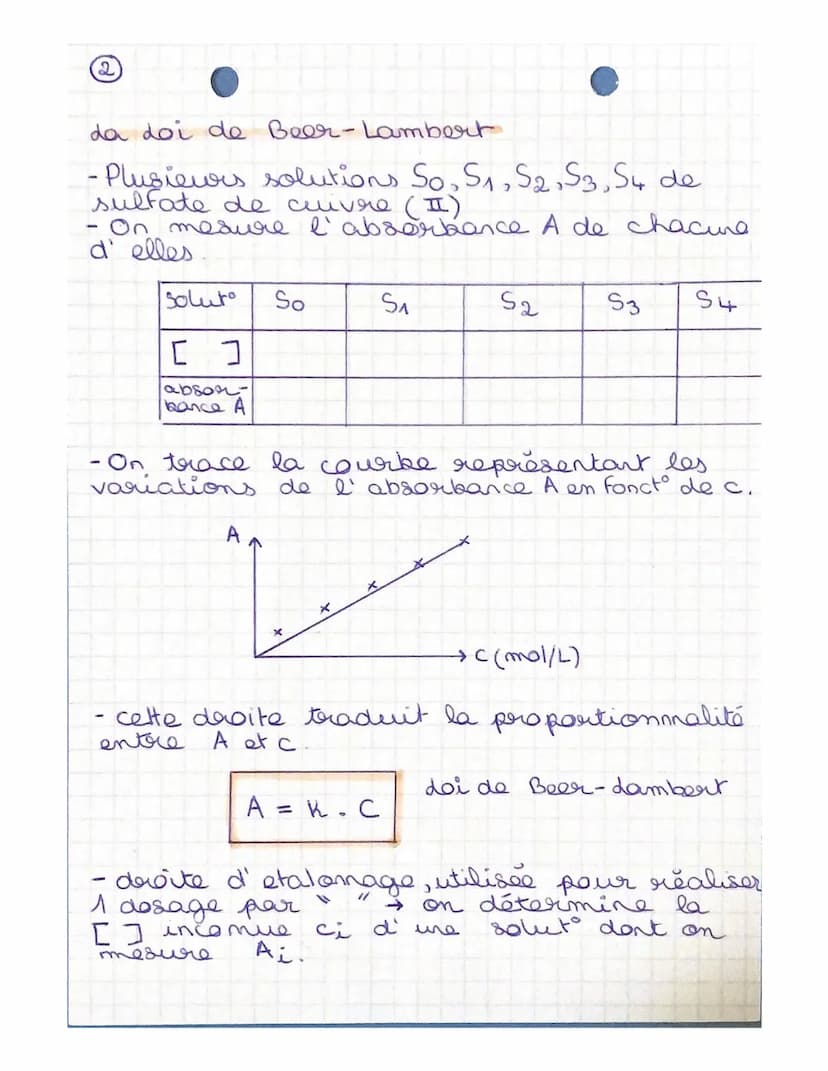 2
La Loi de Beer-Lambert
- Plusieurs solutions S0, S1, S2, S3, S4 de
sulfate de cuivre (II)
- On mesure l'absorbance A de chacune
d'elles.
solut° S0 S1 S2 S3 S4
[ ]
absor-
bance A
- On trace la courbe représentant les
variations de l'absorbance A en fonct° de c.
A
C (mol/L)
- cette droite traduit la proportionnnalité
entre A et c.
Loi de Beer-Lambert
A = K . C
- droite d'etalonnage, utilisée pour réaliser
1 dosage par " " → on détermine la
[ ] inconnue ci d'une solut° dont on
mesure Ai.